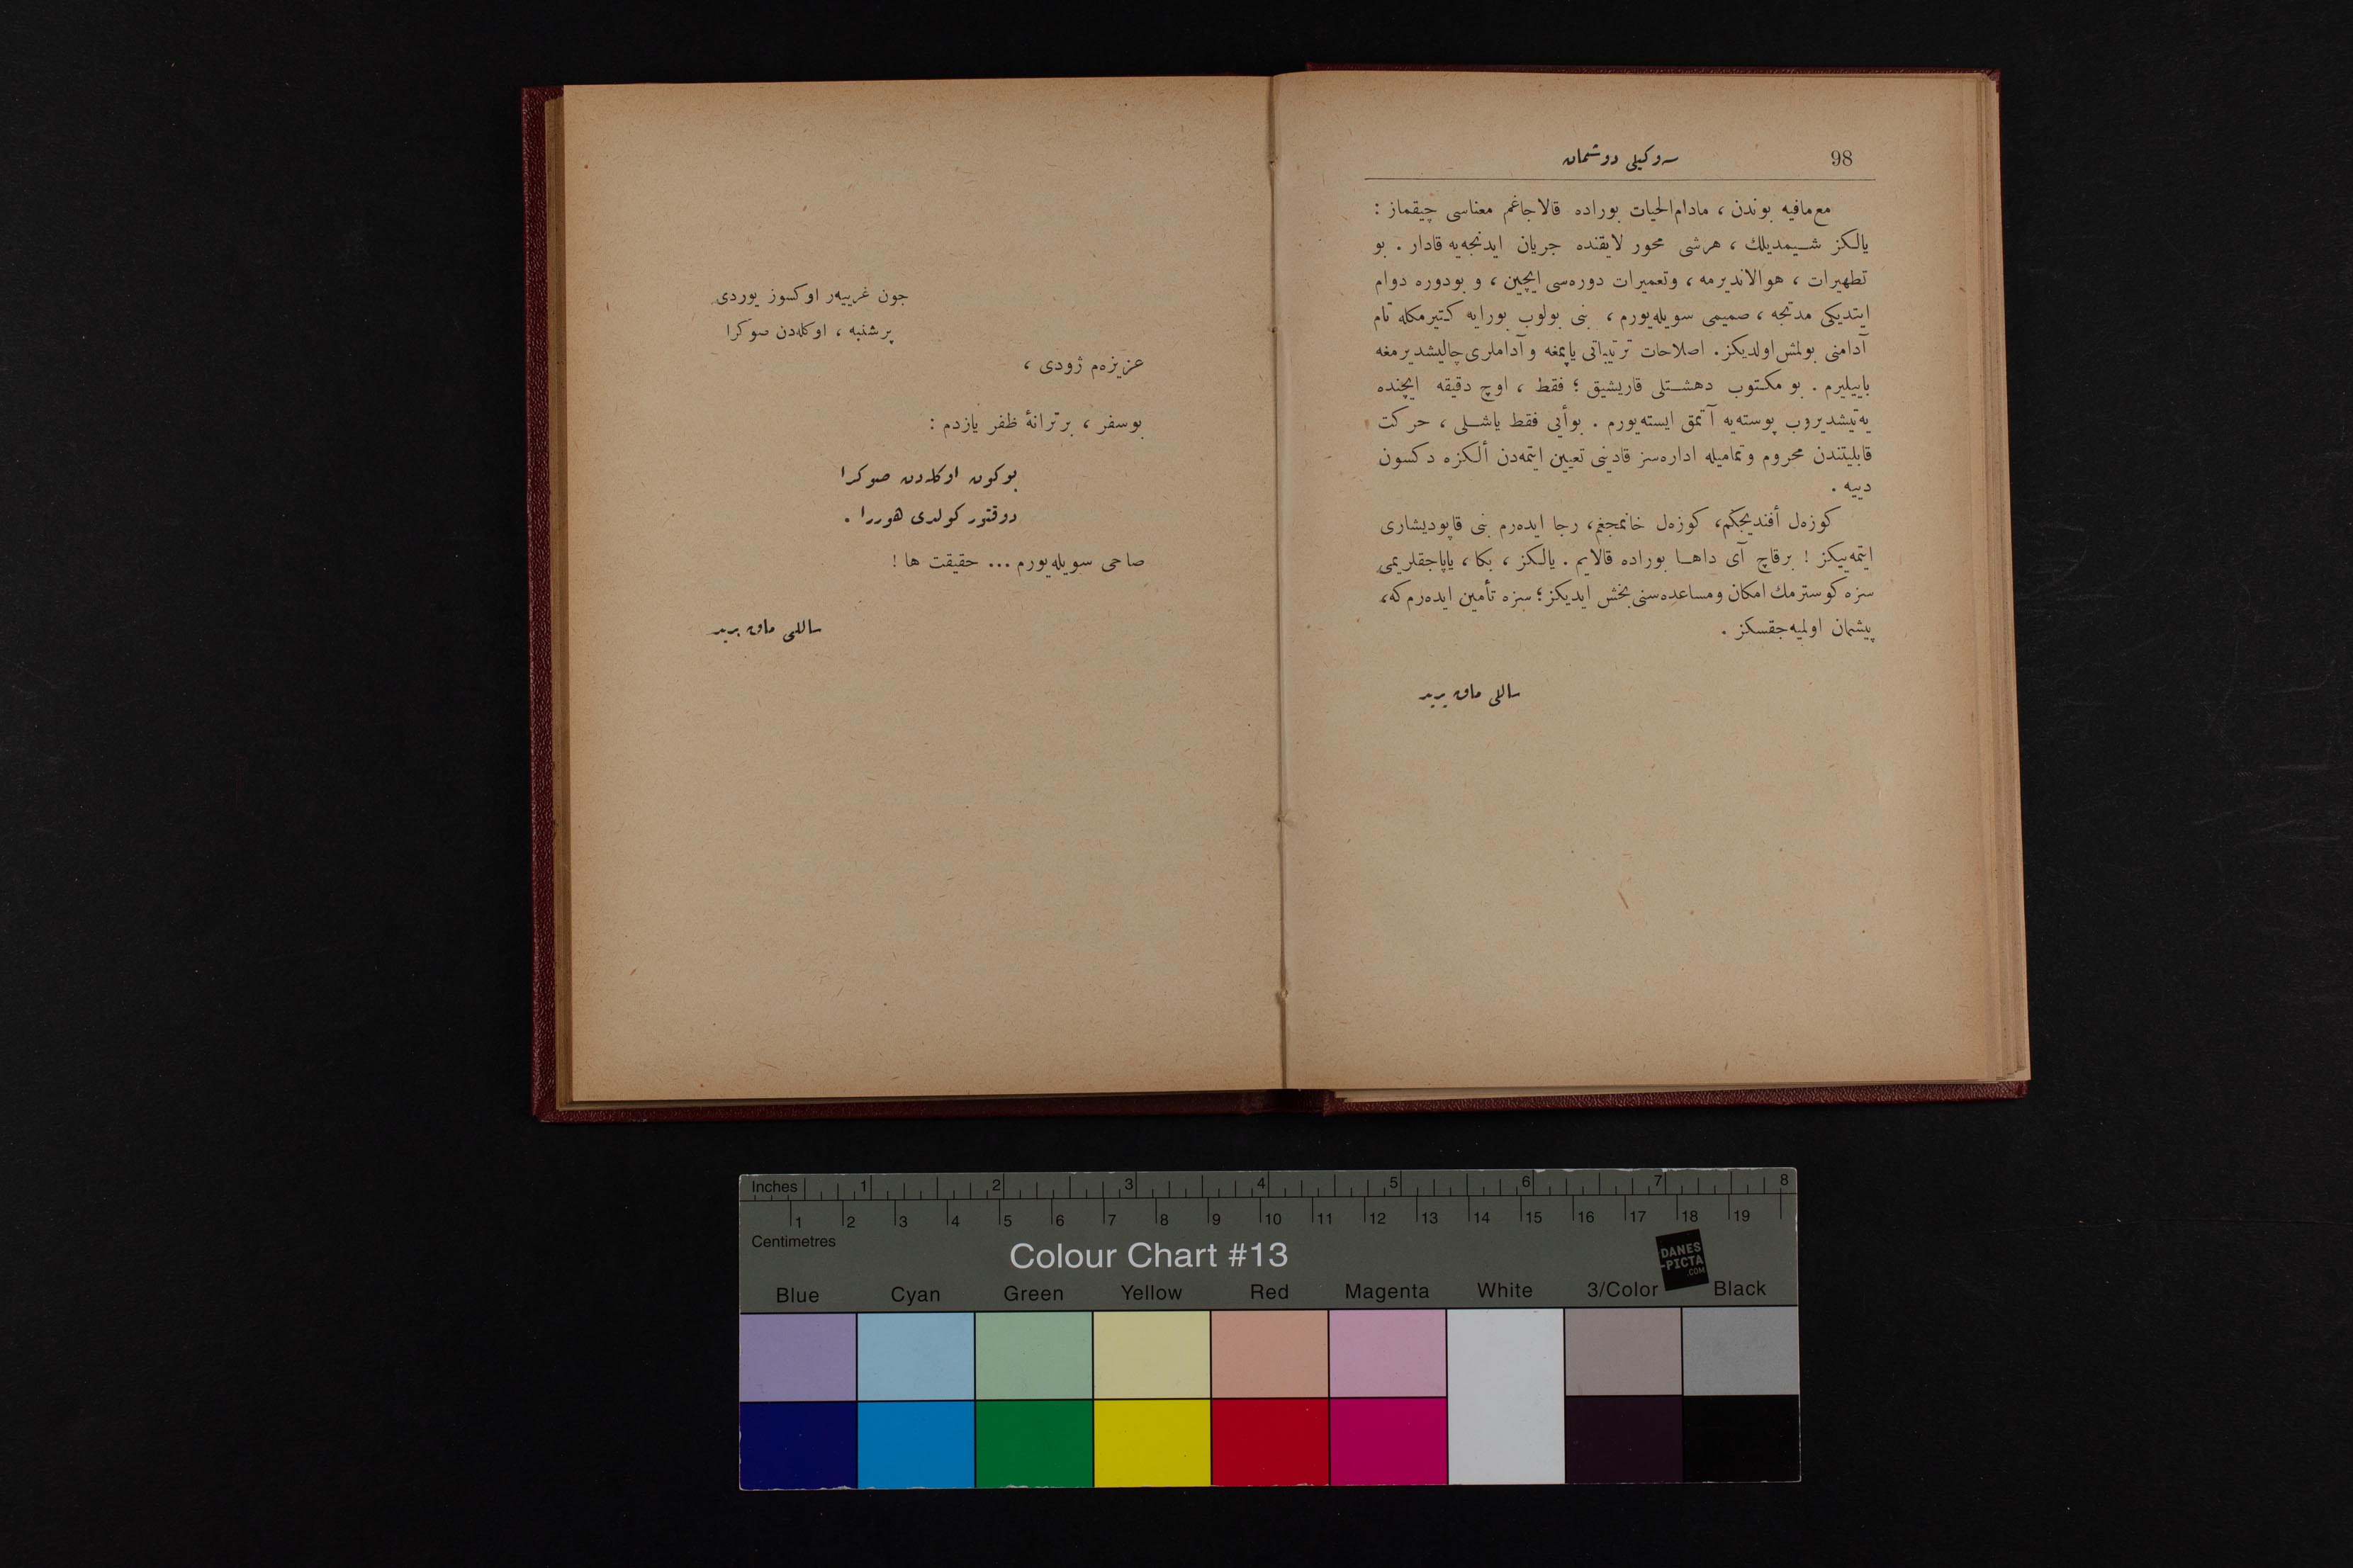 98
سه‌وكیلی دوشمان
مع‌مافیه بوندن ، مادام‌الحیات بوراده قالاجاغم معناسی چیقماز :
یالكز شیمدیلك ، هرشی محور لایقنده جریان ایدنجه‌یه قادار . بو
تطهیرات ، هوالاندیرمه ، وتعمیرات دوره‌سی ایچین ، و بودوره دوام
ایتدیكی مدتجه ، صمیمی سویله‌یورم ، بنی بولوب بورایه كتیرمكله تام
آدامنی بولمش اولدیكز. اصلاحات ترتیباتی یاپمغه و آداملری چالیشدیرمغه
باییلیرم . بو مكتوب دهشتلی قاریشیق ؛ فقط ، اوچ دقیقه ایچنده
یه‌تیشدیروب پوسته‌یه آتمق ایسته‌یورم . بوأیی فقط یاشلی ، حركت
قابلیتندن محروم وتمامیله اداره‌سز قادینی تعیین ایتمه‌دن ألكزه دكسون
دییه .
كوزه‌ل أفندیجكم، كوزه‌ل خانمجغم، رجا ایده‌رم بنی قاپودیشاری
ایتمه‌ییكز ! برقاچ آی داها بوراده قالایم . یالكز ، بكا ، یاپاجقلریمی
سزه كوسترمك امكان ومساعده‌سنی بخش ایدیكز ؛ سزه تأمین ایده‌رم كه،
پیشمان اولمیه‌جقسكز .
ساللی ماق برید
جون غرییه‌ر اوكسوز یوردی
پرشنبه ، اوكله‌دن صوكرا
عزیزه‌م ژودی ،
بوسفر ، برترانهٔ ظفر یازدم :
بوكون اوكله‌دن صوكرا
دوقتور كولدی هوررا .
صاحی سویله‌یورم ... حقیقت ها !
ساللی ماق برید
Inches 1 2 3 4 5 6 7 8
1 2 3 4 5 6 7 8 9 10 11 12 13 14 15 16 17 18 19
Centimetres
Colour Chart #13
DANES
-PICTA
.COM
Blue Cyan Green Yellow Red Magenta White 3/Color Black